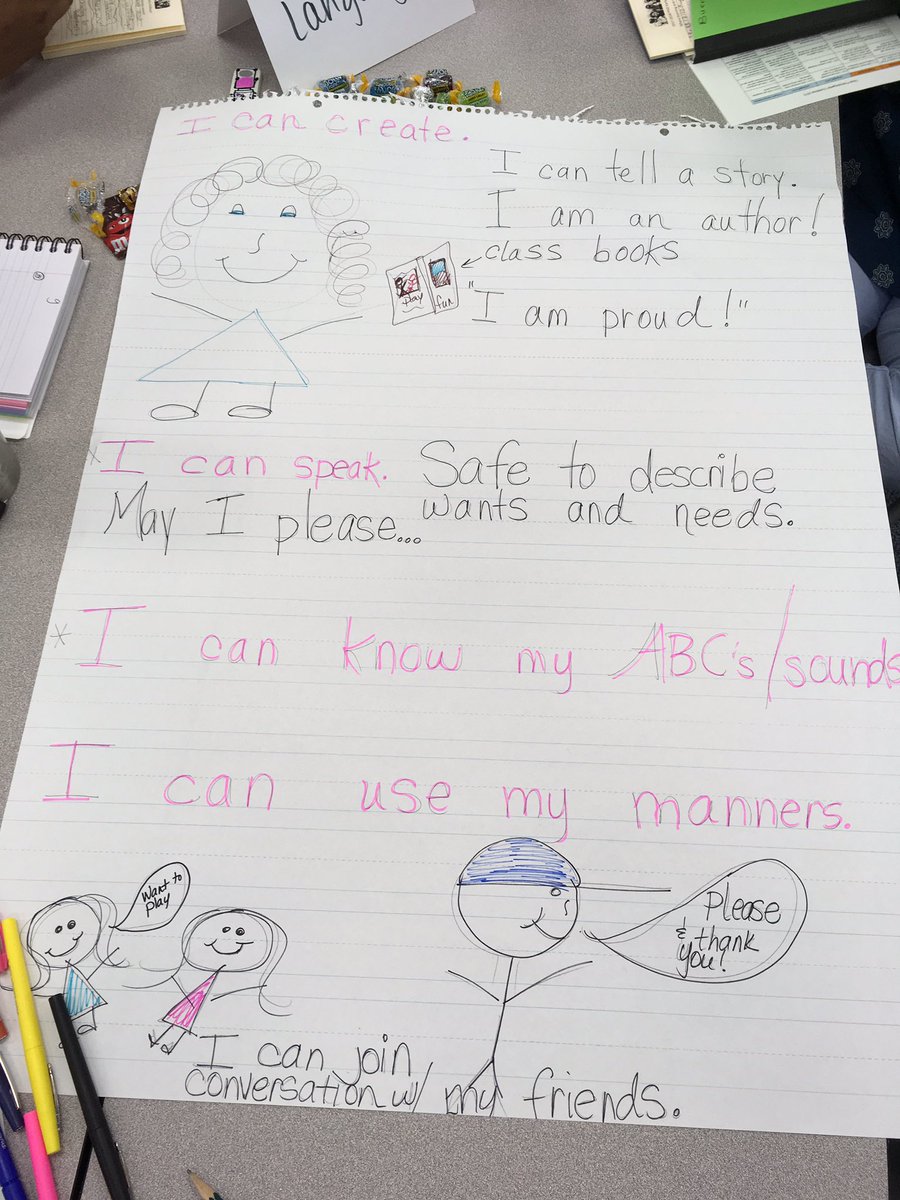 I can create.
I can tell a story.
I am an author!
class books
play
fun
"I am proud!"
I can speak. Safe to describe
May I please... wants and needs.
I can know my ABC's/sounds
I can use my manners.
Want to
play
Please
& thank
you!
I can join
conversation w/ my friends.